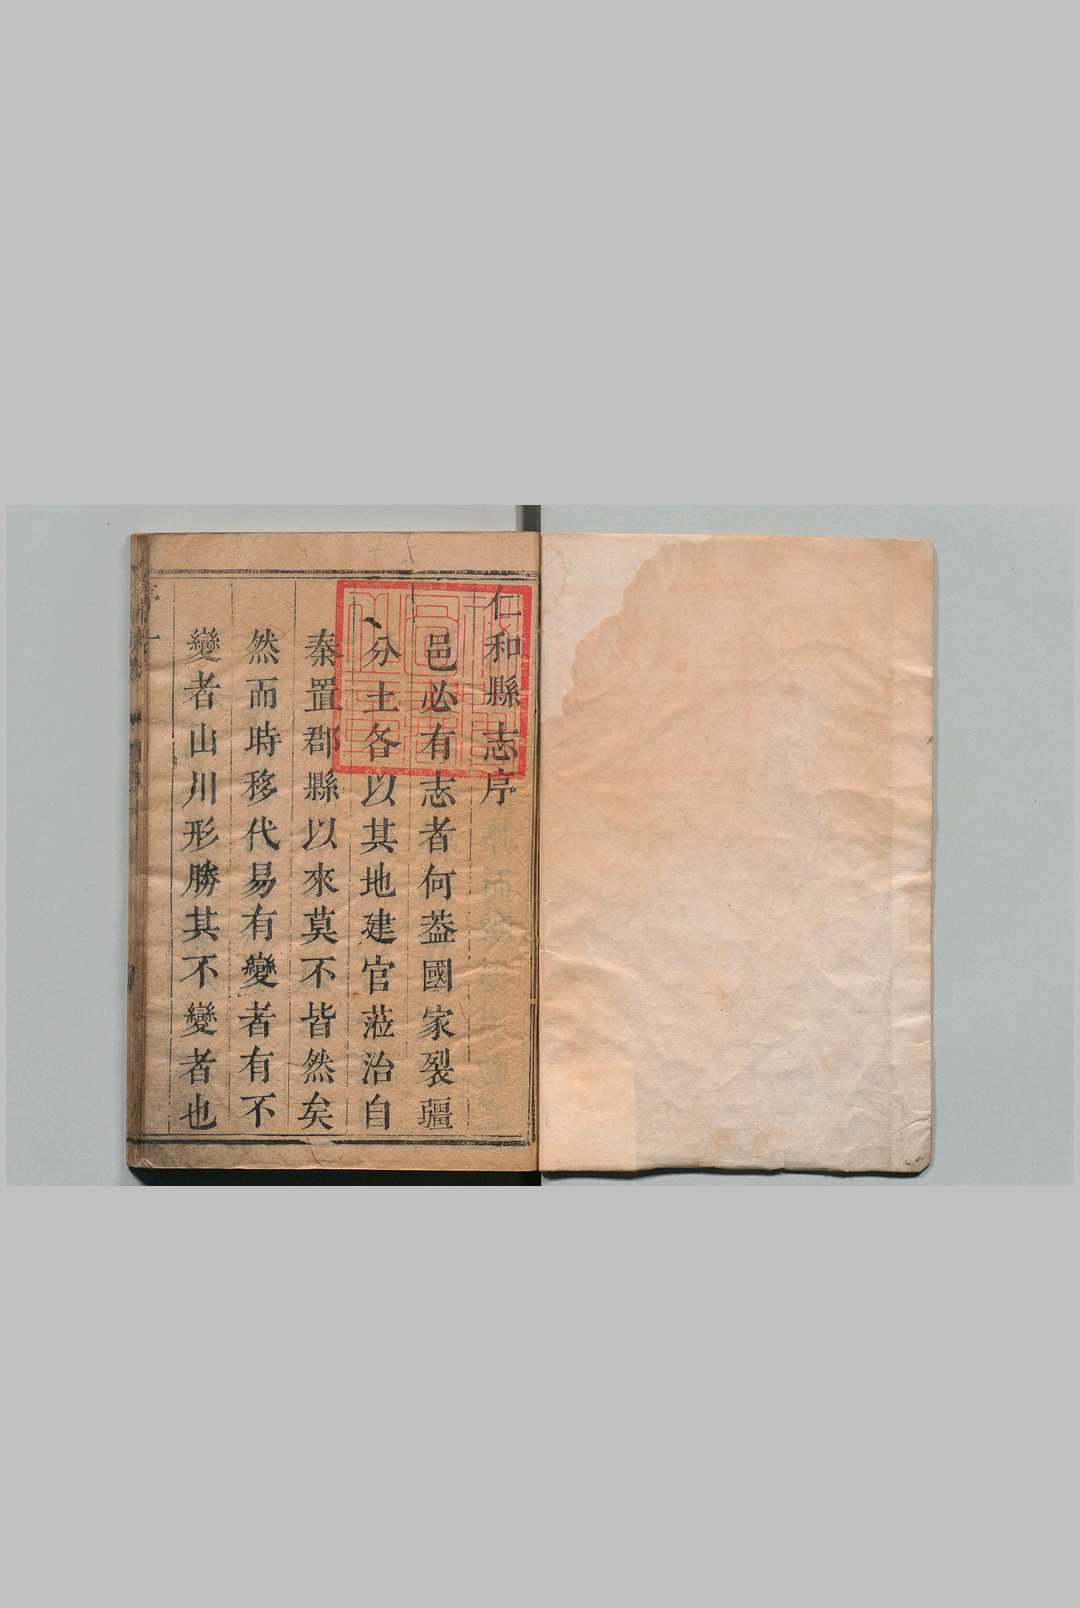 仁和縣志序
邑必有志者何葢國家裂疆
分土各以其地建官蒞治自
秦置郡縣以來莫不皆然矣
然而時移代易有變者有不
變者山川形勝其不變者也